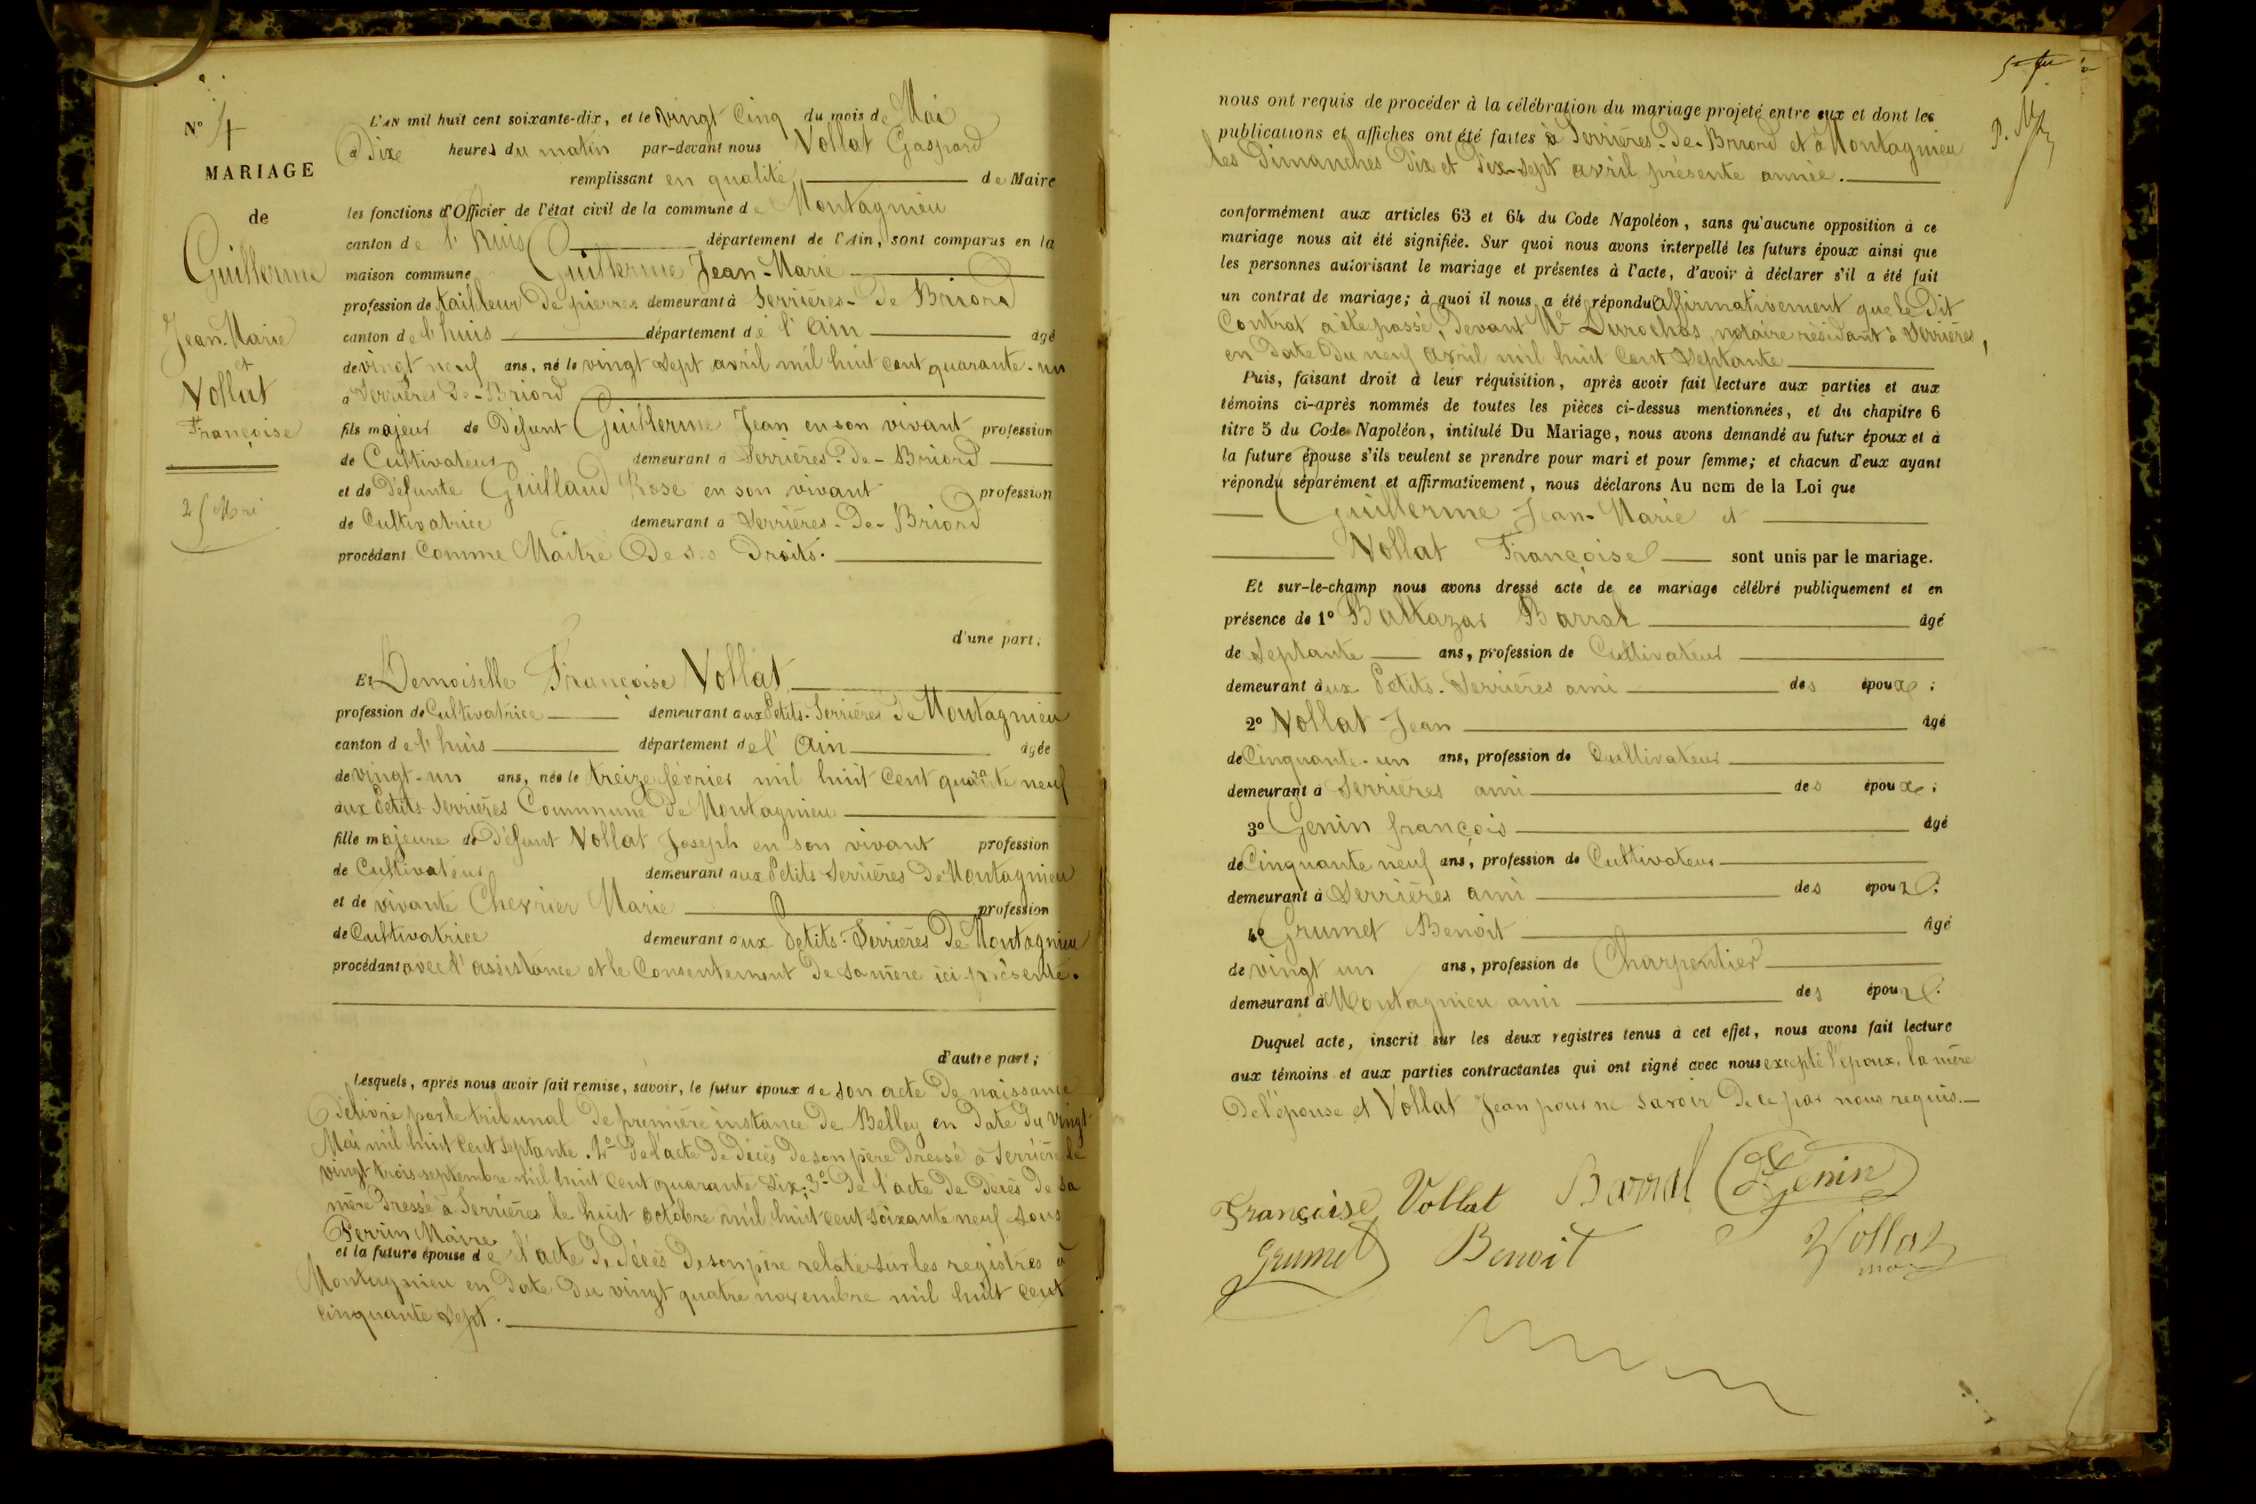 N° 4
MARIAGE
de
Guillerme
Jean-Marie
et
Vollat
Françoise
25 Mai
L'AN mil huit cent soixante-dix, et le vingt cinq du mois de Mai
à Dixe heures du matin par-devant nous Vollat Gaspard
remplissant en qualité de Maire
les fonctions d'Officier de l'état civil de la commune de Montagnieu
canton de l'huis département de l'Ain, sont comparus en la
maison commune Guillerme Jean-Marie
profession de tailleur De pierres demeurant à Serrières-De Briord
canton de l'huis département de l'Ain âgé
de vingt neuf ans, né le vingt sept avril mil huit cent quarante-un
à Serrières-De-Briord
fils majeur de Défunt Guillerme Jean en son vivant profession
de Cultivateur demeurant à Serrières-De-Briord
et de Défunte Guilland Rose en son vivant profession
de Cultivatrice demeurant à Serrières-De-Briord
procédant Comme Maître De ses Droits.
d'une part;
Et Demoiselle Françoise Vollat
profession de Cultivatrice demeurant aux Petits-Serrières De Montagnieu
canton de l'huis département de l'Ain âgée
de vingt-un ans, née le treize février mil huit cent quarante neuf
aux Petits Serrières Commune De Montagnieu
fille majeure de Défunt Vollat Joseph en son vivant profession
de Cultivateur demeurant aux Petits Serrières De Montagnieu
et de vivante Chevrier Marie profession
de Cultivatrice demeurant aux Petits-Serrières De Montagnieu
procédant avec l'assistance et le Consentement De sa mère ici présente.
d'autre part;
Lesquels, après nous avoir fait remise, savoir, le futur époux de son acte De naissance
Délivré par le tribunal De première instance De Belley en Date Du vingt
Mai mil huit cent septante. 2° De l'acte De Décès De son père Dressé à Serrières le
vingt trois septembre mil huit cent quarante Dix; 3° De l'acte De Décès De sa
mère Dressé à Serrières le huit octobre mil huit cent soixante neuf sous
Perrin Maire
et la future épouse de l'acte De Décès De son père relaté sur les registres à
Montagnieu en Date Du vingt quatre novembre mil huit cent
cinquante sept.
nous ont requis de procéder à la célébration du mariage projeté entre eux et dont les
publications et affiches ont été faites à Serrières-De-Briord et à Montagnieu
les Dimanches Dix et Dix-sept avril présente année.
conformément aux articles 63 et 64 du Code Napoléon, sans qu'aucune opposition à ce
mariage nous ait été signifiée. Sur quoi nous avons interpellé les futurs époux ainsi que
les personnes autorisant le mariage et présentes à l'acte, d'avoir à déclarer s'il a été fait
un contrat de mariage; à quoi il nous a été répondu affirmativement que le Dit
Contrat a été passé Devant Me Durochas, notaire résidant à Serrières,
en Date Du neuf avril mil huit cent septante
Puis, faisant droit à leur réquisition, après avoir fait lecture aux parties et aux
témoins ci-après nommés de toutes les pièces ci-dessus mentionnées, et du chapitre 6
titre 5 du Code Napoléon, intitulé Du Mariage, nous avons demandé au futur époux et à
la future épouse s'ils veulent se prendre pour mari et pour femme; et chacun d'eux ayant
répondu séparément et affirmativement, nous déclarons Au nom de la Loi que
Guillerme Jean-Marie et
Vollat Françoise sont unis par le mariage.
Et sur-le-champ nous avons dressé acte de ce mariage célébré publiquement et en
présence de 1° Baltazar Barral âgé
de septante ans, profession de Cultivateur
demeurant aux Petits-Serrières ami des époux;
2° Vollat Jean âgé
de Cinquante-un ans, profession de Cultivateur
demeurant à Serrières ami des époux;
3° Genin françois âgé
de Cinquante neuf ans, profession de Cultivateur
demeurant à Serrières ami des époux;
4° Grumet Benoit âgé
de vingt un ans, profession de Charpentier
demeurant à Montagnieu ami des époux.
Duquel acte, inscrit sur les deux registres tenus à cet effet, nous avons fait lecture
aux témoins et aux parties contractantes qui ont signé avec nous excepté l'époux, la mère
De l'épouse et Vollat Jean pour ne savoir De ce par nous requis.
Françoise Vollat Barral F Genin
Grumet Benoit Vollat